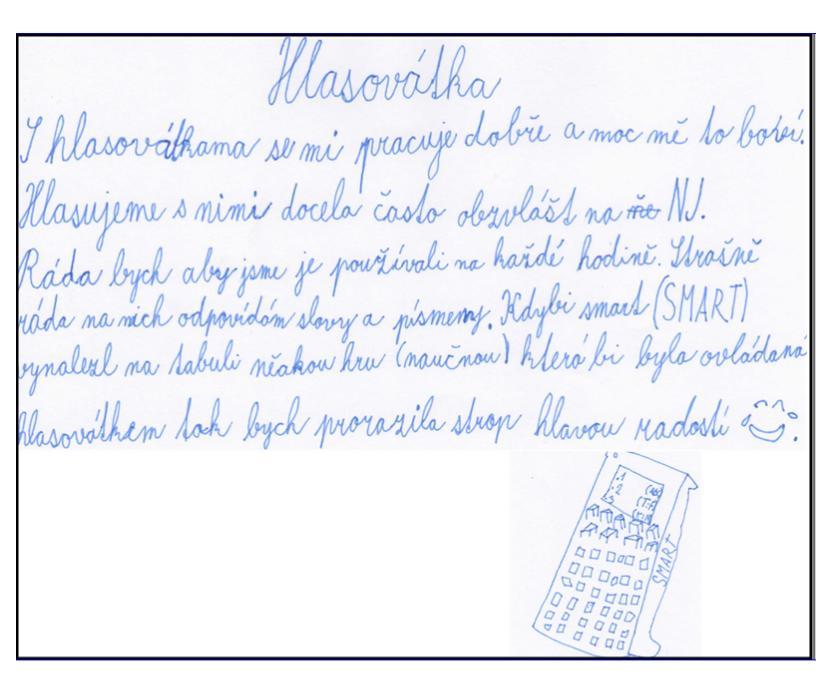 Hlasovátka
S hlasovátkama se mi pracuje dobře a moc mě to baví.
Hlasujeme s nimi docela často obzvlášt na NJ.
Ráda bych aby jsme je používali na každé hodině. Strašně
ráda na nich odpovídám slovy a písmeny. Kdybi smart (SMART)
vynalezl na tabuli něakou hru (naučnou) která bi byla ovládaná
hlasovátkem tak bych prorazila strop hlavou radostí
.1
.2
.3
SMART